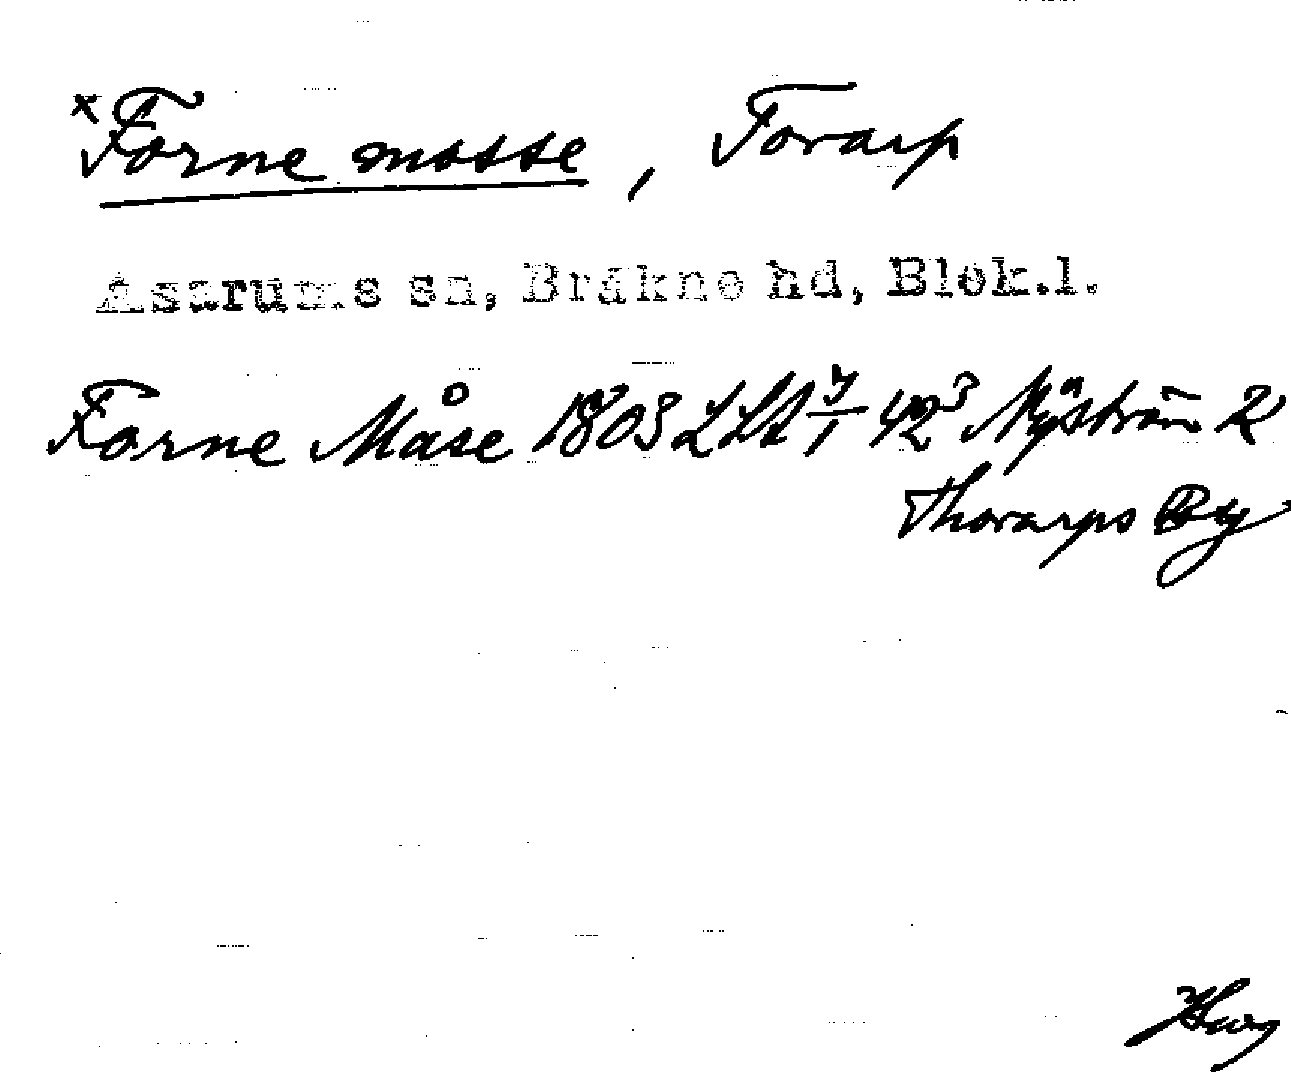 ×Forne mosse, Torarp
Asarums sn, Bräkne hd, Blek.l.
Forne Måse 1803 LSA 7/1 42³ Nyström R
Thorarps By